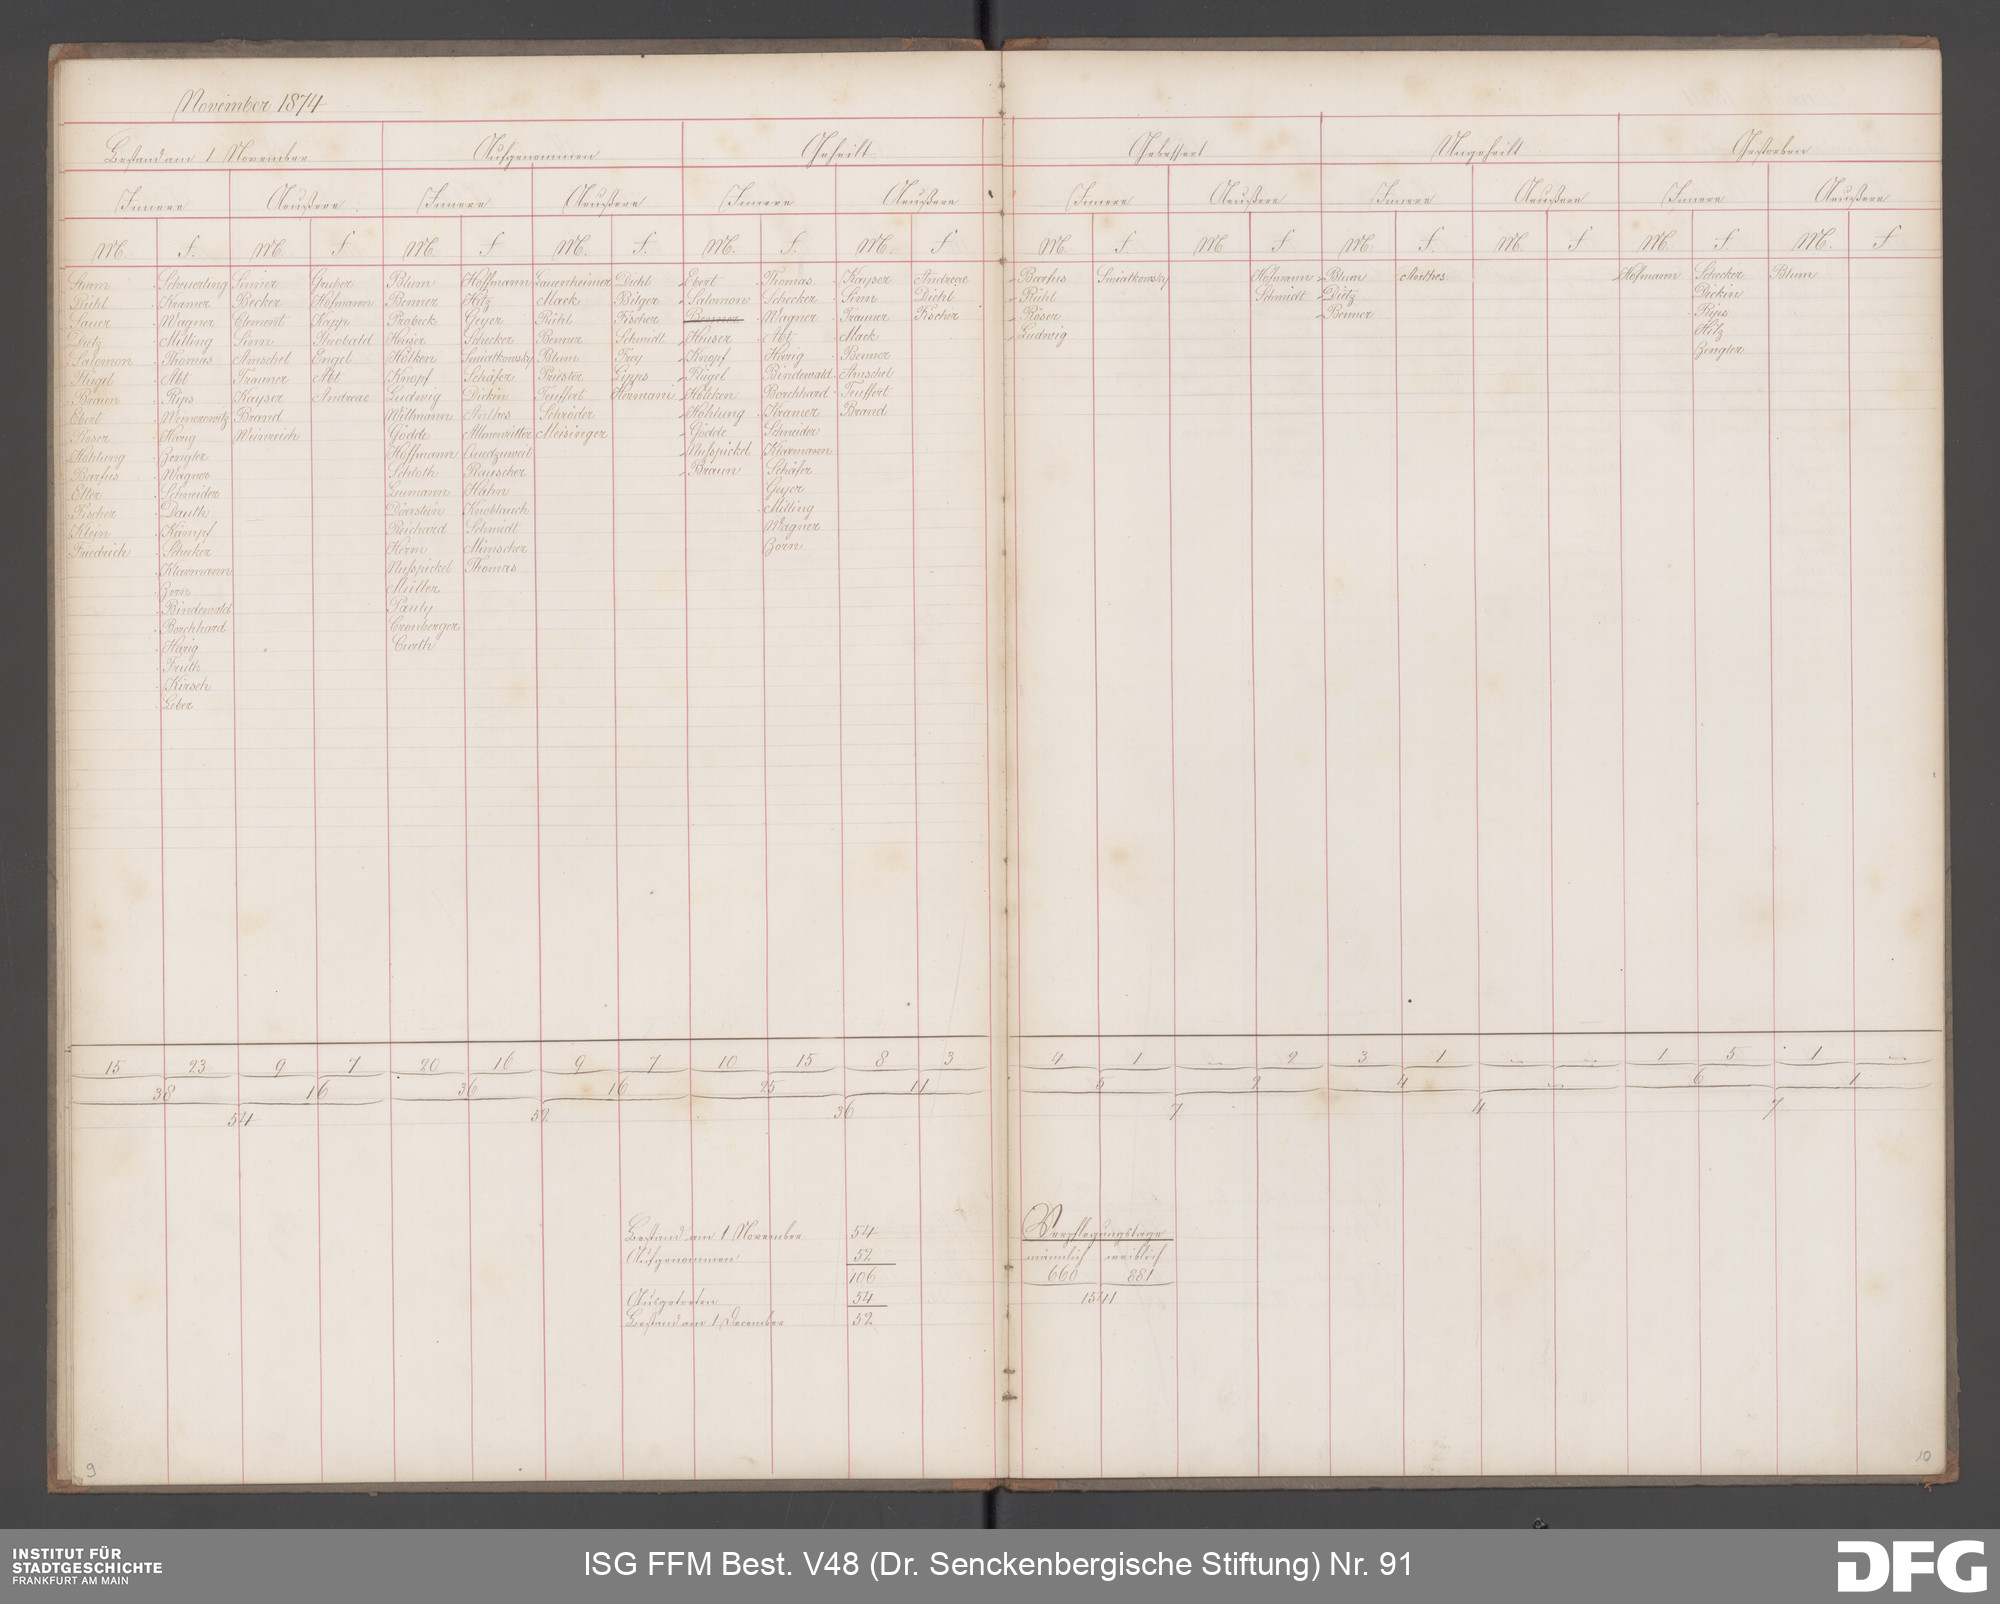 November 1874
Bestand am 1 November Aufgenommen Geheilt Gebessert Ungeheilt Gestorben
Innere Aeußere Innere Aeußere Innere Aeußere Innere Aeußere Innere Aeußere Innere Aeußere
M. f. M. f M. f M. f. M. f. M. f M. f. M f M. f. M. f M. f. M. f
Sturm Scheuerling Sinner Gruber Blum Hoffmann Lauenheimer Diehl Ebert Thomas Kayser Andreae Barfus Smialkowsky Hofmann Blum Anthes Hofmann Schecker Blum
Rühl Kramer Becker Hofmann Benner Hitz Mack Bilger Salomon Schecker Sinn Diehl Rühl Schmidt Dietz Dickin
Sauer Wagner Clement Kapp Probeck Geyer Rühl Fischer Benner Wagner Trauner Fischer Röser Benner Rips
Dietz Milling Sinn Theobald Heuser Schecker Benner Schmidt Heuser Abt Mack Ludwig Hitz
Salomon Thomas Amschel Engel Hölken Smialkowsky Blum Frey Knopf Härig Benner Zengler
Flügel Abt Trauner Abt Knopf Schäfer Priester Lipps Flügel Bindewald Amschel
Braun Rips Kayser Andreae Ludwig Dickin Teuffert Hermani Hölcken Borchhard Teuffert
Ebert Weinerowitz Brand Willmann Anthes Schröder Höhlung Kramer Brand
Röser Härig Weinreich Gödde Allmenritter Meisinger Gödde Schneider
Höhlung Zengler Hoffmann Quedzuweit Nußpickel Klarmann
Barfus Wagner Schloth Rauscher Braun Schäfer
Etter Schneider Gumann Hahn Geyer
Fischer Dauth Dörrstein Knoblauch Milling
Klein Kämpf Reichard Schmidt Wagner
Friedrich Schecker Herm Münscher Zorn
Klarmann Nußpickel Thomas
Zorn Müller
Bindewald Pauly
Borchhard Cronberger
Härig Curth
Fruth
Kirsch
Leber
15 23 9 7 20 16 9 7 10 15 8 3 4 1 — 2 3 1 — — 1 5 1 —
38 16 36 16 25 11 5 2 4 — 6 1
54 52 36 7 4 7
Bestand am 1 November 54
Aufgenommen 52
106
Ausgetreten 54
Bestand am 1 December 52
Verpflegungstage
männlich weiblich
660 881
1541
9
10
INSTITUT FÜR
STADTGESCHICHTE
FRANKFURT AM MAIN
ISG FFM Best. V48 (Dr. Senckenbergische Stiftung) Nr. 91
DFG